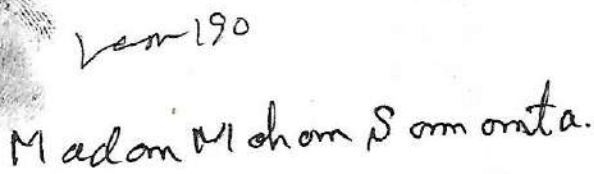 190
Madan Mohan Samanta.